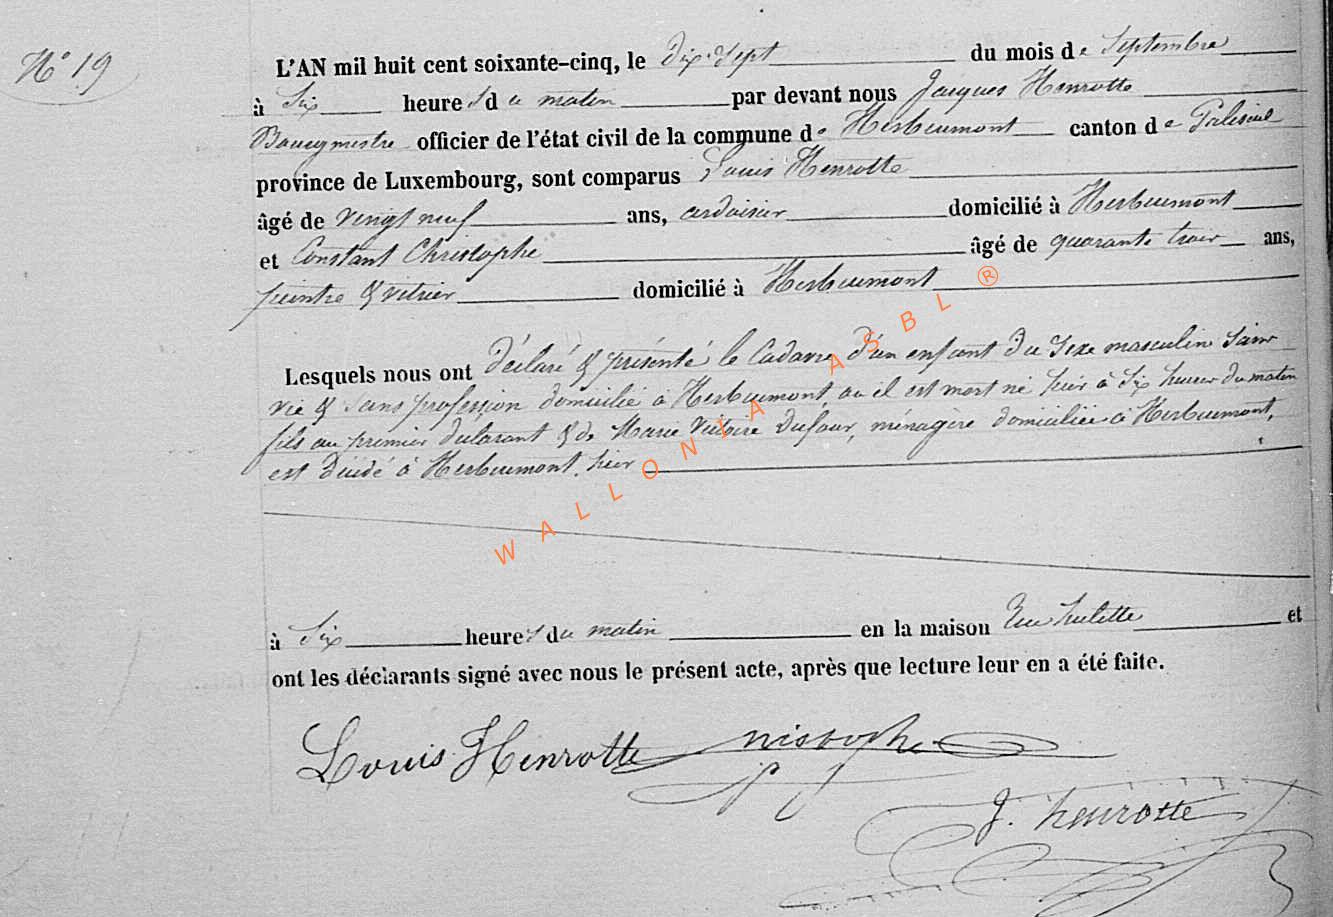 N° 19
L'AN mil huit cent soixante-cinq, le Dix-Sept du mois de Septembre
à Six heures du matin par devant nous Jacques Henrotte
Bourgmestre officier de l'état civil de la commune de Herbeumont canton de Paliseul
province de Luxembourg, sont comparus Louis Henrotte
âgé de vingt neuf ans, ardoisier domicilié à Herbeumont
et Constant Christophe âgé de quarante trois ans,
peintre & vitrier domicilié à Herbeumont
Lesquels nous ont déclaré & présenté le Cadavre d'un enfant du Sexe masculin Sans
vie & Sans profession domicilié à Herbeumont, où il est mort né hier à Six heures du matin
fils au premier déclarant & de Marie Victoire Dufour, ménagère domiciliée à Herbeumont,
est décédé à Herbeumont, hier
à Six heures du matin en la maison Rue hulette et
ont les déclarants signé avec nous le présent acte, après que lecture leur en a été faite.
Louis Henrotte
J. henrotte
WALLONIA ASBL ®